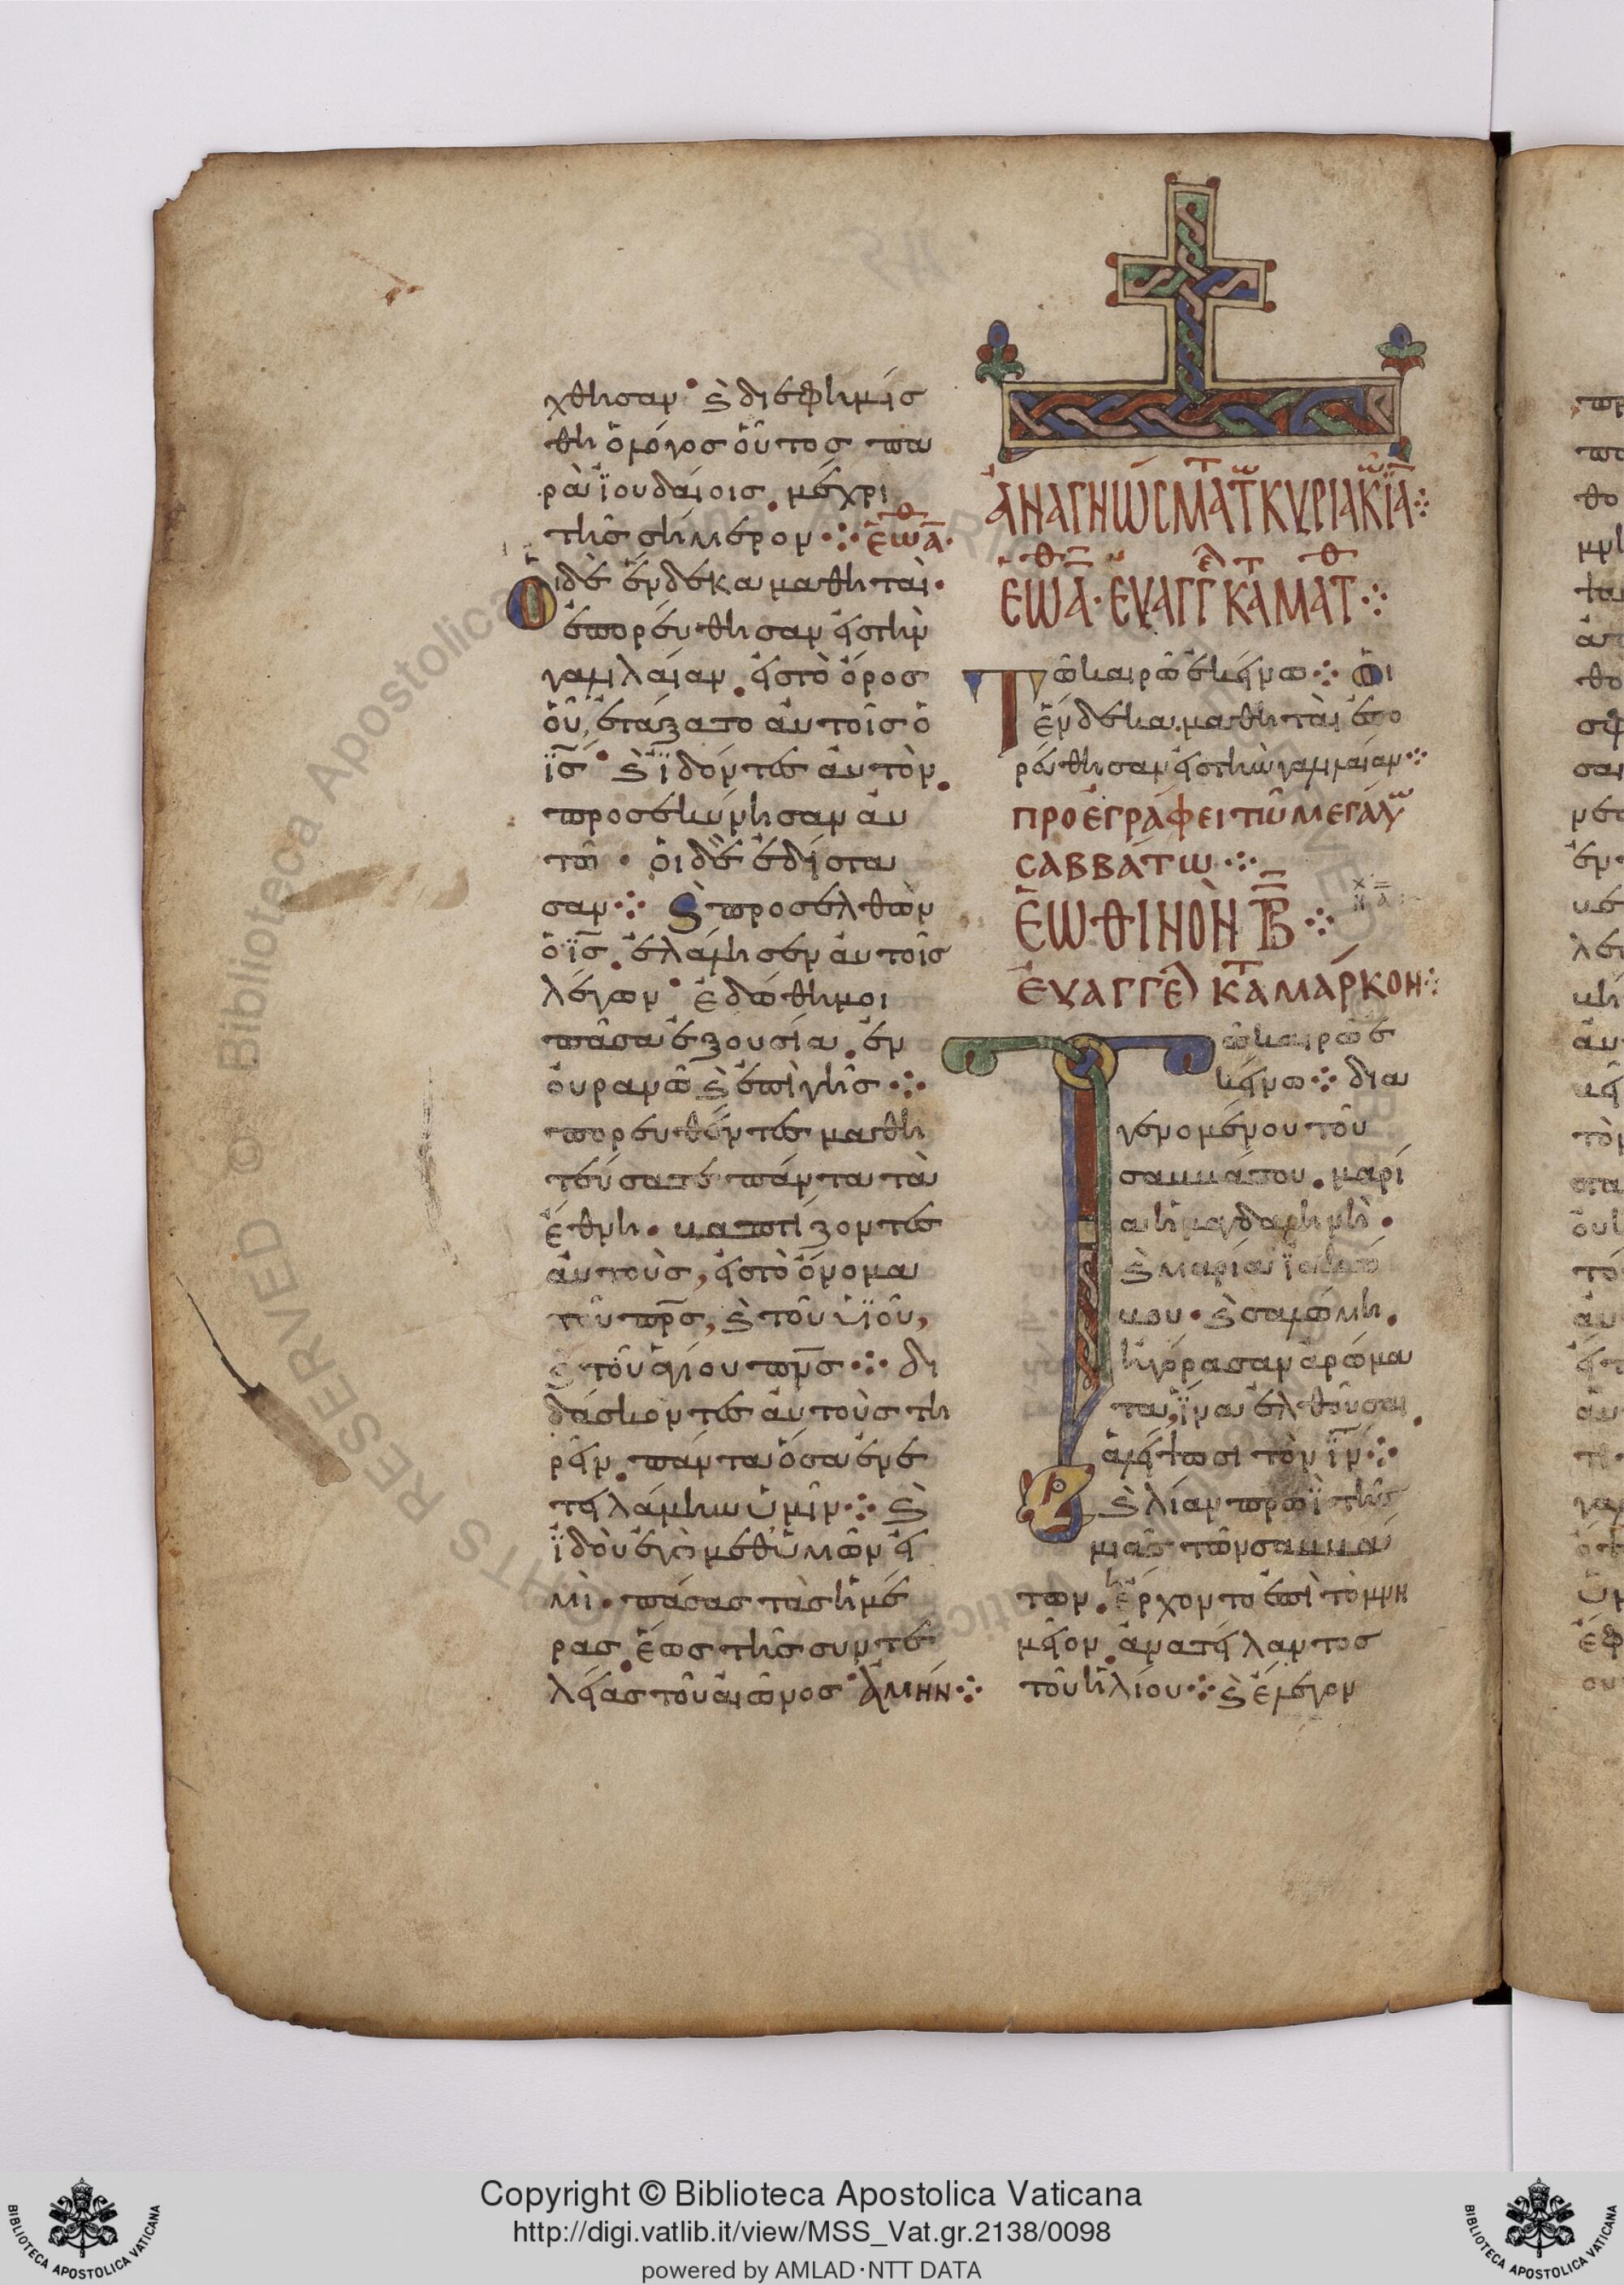 χθησαν· ϗ διεφημίσ
θη ὁ λόγος οὗτος πα
ρὰ ϊουδαίοις, μέχρι
τῆς σήμερον ⁘ ἑωθ α̅·
Οἱ δὲ ἕνδεκα μαθηταὶ·
ἐπορεύθησαν εἰς τὴν
γαλιλαίαν, εἰς τὸ ὄρος
οὗ ἐτάξατο αὐτοῖς ὁ
ι̅ς̅· ϗ ϊδόντες αὐτὸν,
προσεκύνησαν αὐ
τῶ· οἱ δὲ ἐδίστα
σαν ⁘ ϗ προσελθὼν
ὁ ι̅ς̅, ἐλάλησεν αὐτοῖς
λέγων· ἐδώθη μοι
πᾶσα ἐξουσία, ἐν
οὐρανῶ ϗ ἐπὶ γῆς ⁘
πορευθέντες μαθη
τεύσατε πάντα τὰ
ἔθνη· βαπτίζοντες
αὐτοὺς, εἰς τὸ ὄνομα
τοῦ π̅ρ̅ς̅, ϗ τοῦ ὑϊοῦ,
ϗ τοῦ ἁγίου π̅ν̅ς̅ ⁘ δι
δάσκοντες αὐτοὺς τη
ρεῖν, πάντα ὅσα ἐνε
τειλάμην ὑμῖν ⁘ ϗ
ϊδοὺ ἐγὼ μεθ' ὑμῶν εἰ
μὶ· πάσας τὰς ἡμέ
ρας, ἕως τῆς συντε
λείας τοῦ αἰῶνος· ἀμήν ⁘
ἈΝΑΓΝΩΣΜΑΤ ΤΩ ΚΥΡΙΑΚῶΝ ΙΑ ⁘
ἙΩΘ Α̅· ΕΥΑΓΓΕΛ ΚΑΤ ΜΑΤΘ ⁘
Τῶ καιρῶ ἐκείνω ⁘ Οἱ
ἕνδεκα μαθηταὶ ἐπο
ρεύθησαν εἰς τὴν γαλιλαίαν ⁘
ΠΡΟΕΓΡΑΦΕΙ ΤΩ ΜΕΓΑΛΩ
ΣΑΒΒΑΤΩ ⁘
ἙΩΘΙΝῸΝ Β̅ ⁘
ΕΥΑΓΓΕΛ ΚΑΤ ΜΑΡΚΟΝ ⁘
Τῶ καιρῶ ἐ
κείνω ⁘ δια
γενομένου τοῦ
σαββάτου, μαρί
α ἡ μαγδαληνὴ·
ϗ μαρία ϊακώ
βου· ϗ σαλώμη,
ἠγόρασαν ἀρώμα
τα, ϊνα ἐλθοῦσαι,
ἀλείψωσι τὸν ι̅ν̅ ⁘
ϗ λίαν πρωῒ τῆς
μιᾶς τῶν σαββά
των, ἔρχοντο ἐπὶ τὸ μνη
μεῖον, ἀνατείλαντος
τοῦ ἡλίου ⁘ ϗ ἔλεγον
Copyright © Biblioteca Apostolica Vaticana
http://digi.vatlib.it/view/MSS_Vat.gr.2138/0098
powered by AMLAD·NTT DATA
BIBLIOTECA APOSTOLICA VATICANA
BIBLIOTECA APOSTOLICA VATICANA